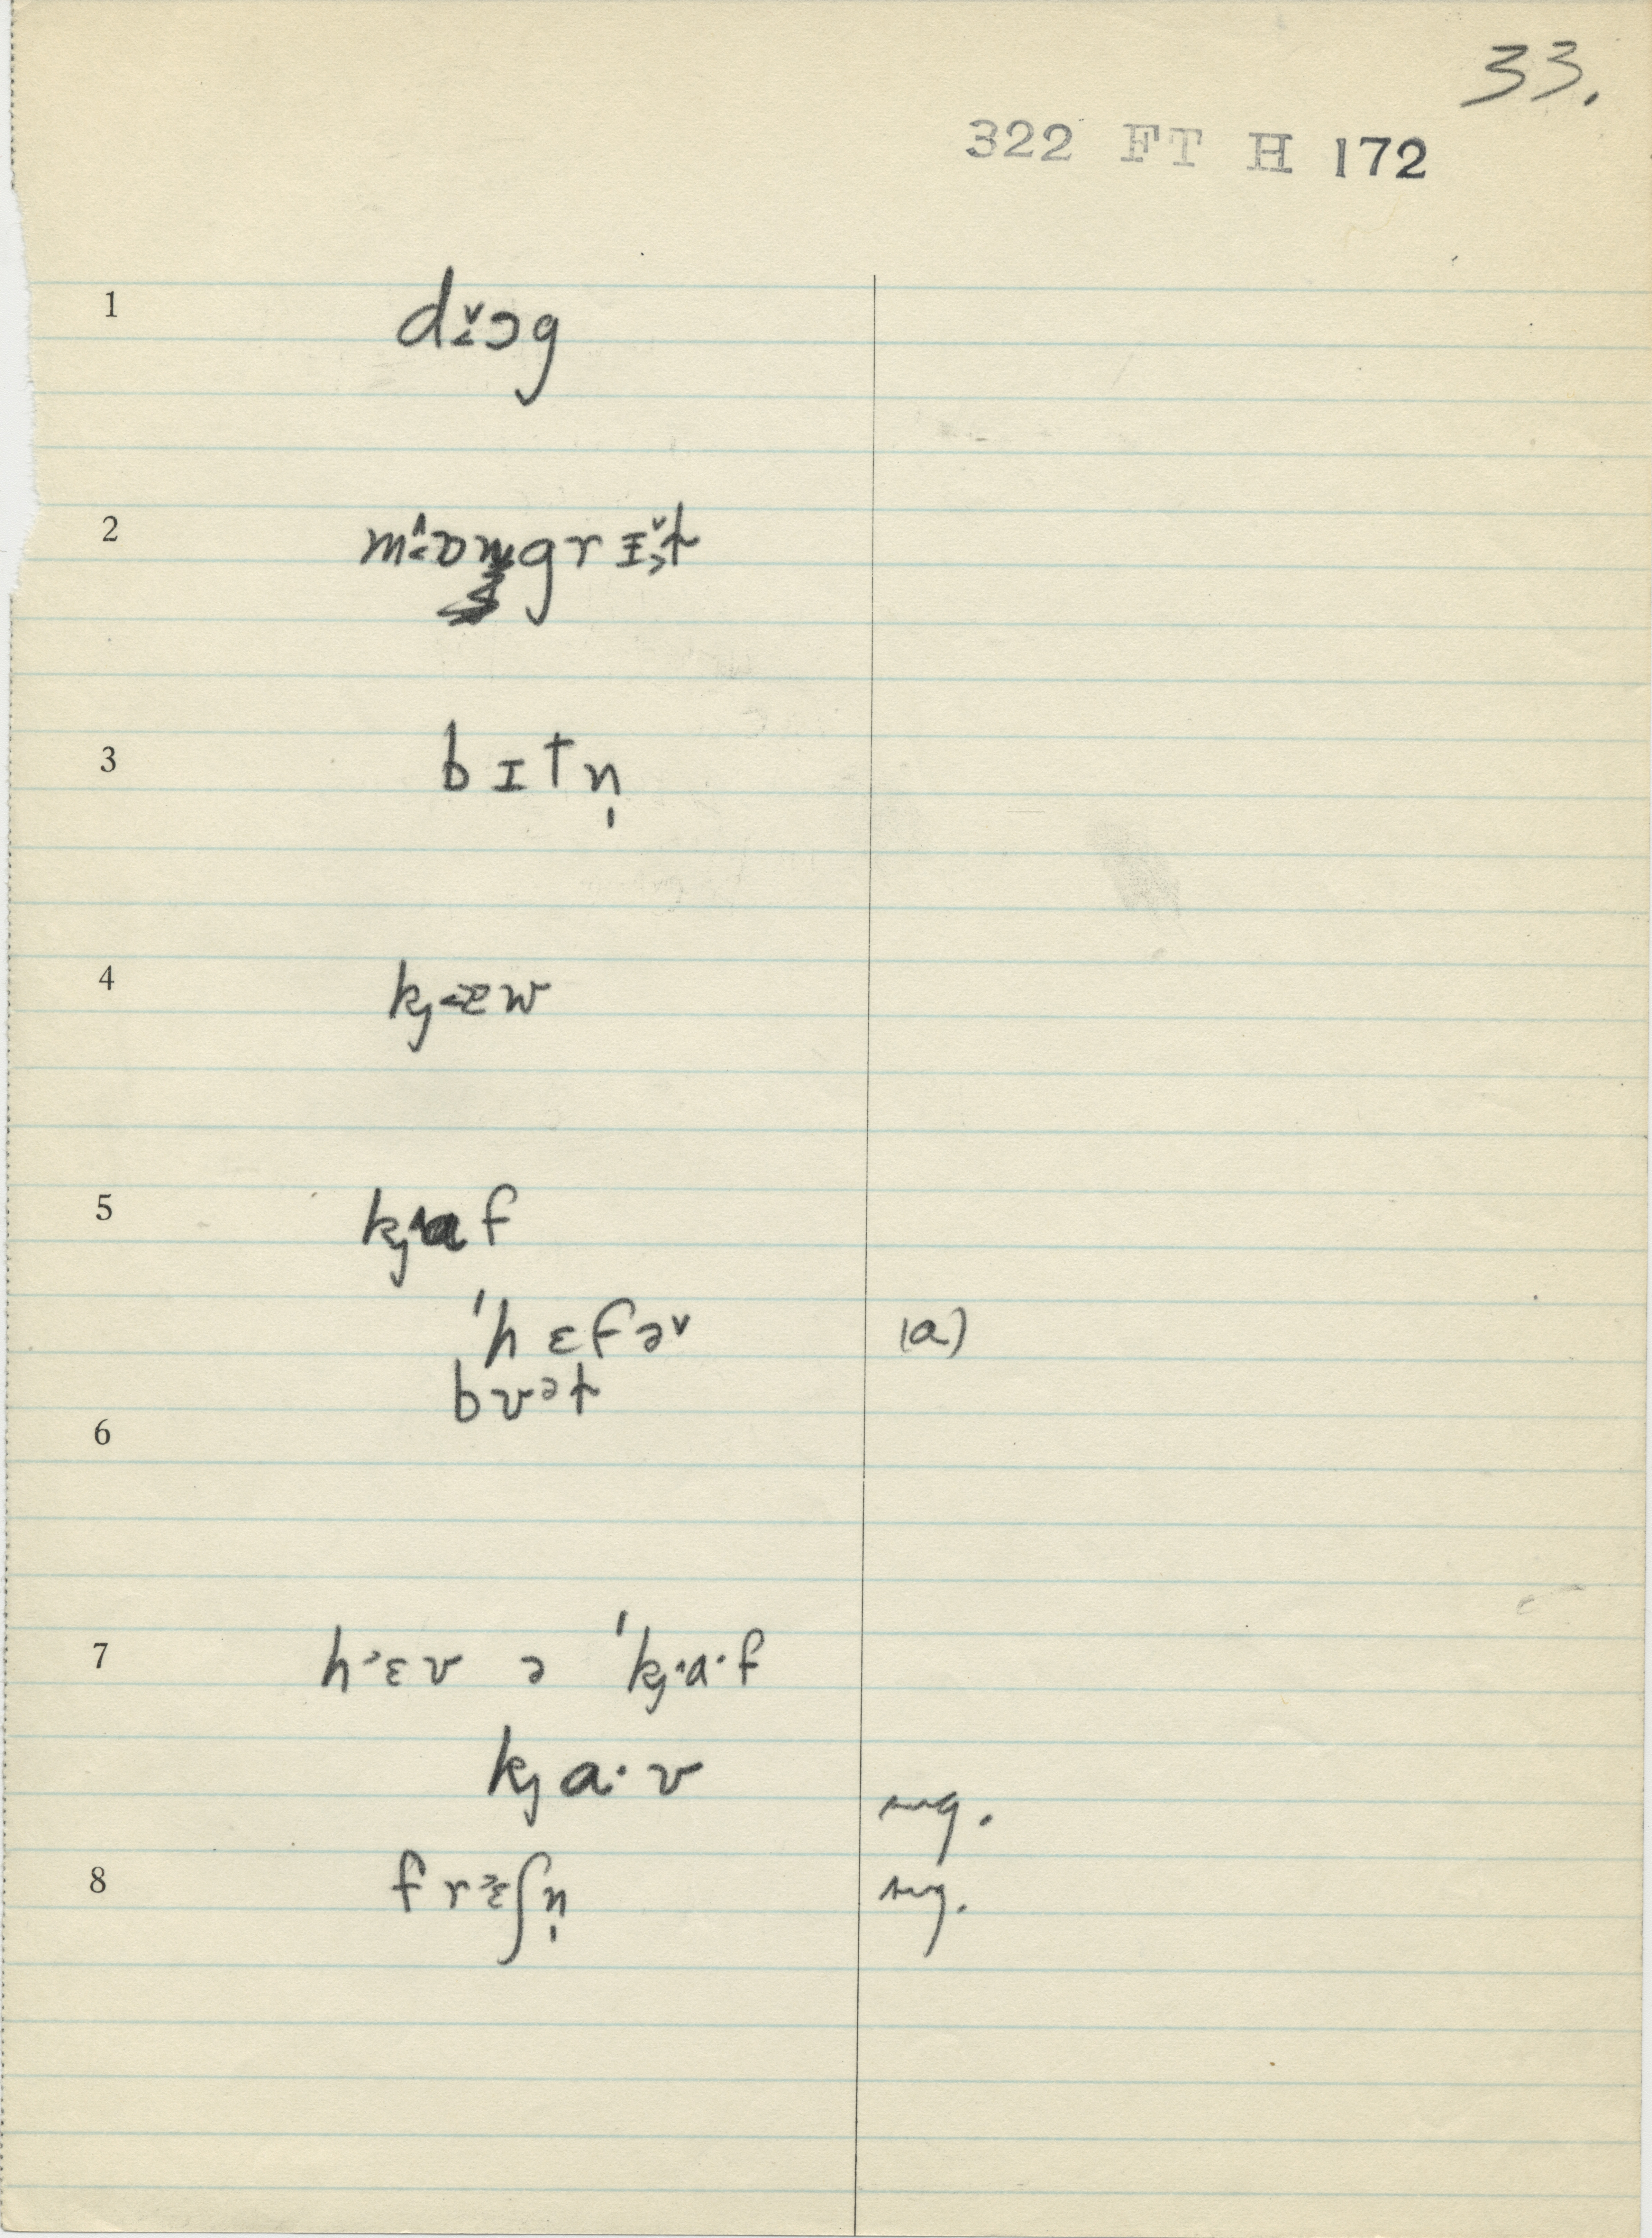 33.
322 FT H 172
1 dɔ̌g
2 mɒngrɪ̌t
3 bɪtn̩
4 kj æw
5 kj af
ˈhɛfə˅ (a)
bvət
6
7 h·ɛv ə ˈkj·a·f
kj a·v
sug.
8 frɛʃn̩ sug.